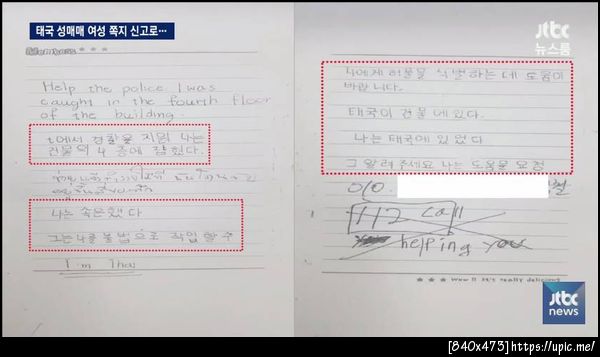 태국 성매매 여성 쪽지 신고로…
Help the police I was
caught in the fourth floor
of the building.
t에서 경찰을 지원 나는
건물의 4 층에 잡혔다.
나는 속은했다
그는 나를 불법으로 작업 할 수
I'm Thai
jtbc
뉴스룸
나에게 건물을 식별하는 데 도움이
바랍니다.
태국이 건물 네 있다.
나는 태국에 있었다
그 알려주세요 나는 도움을 요청
112 call
helping you
★ ★ ★ Wow!! It's really delicious
jtbc
news
[840x473]https://upic.me/